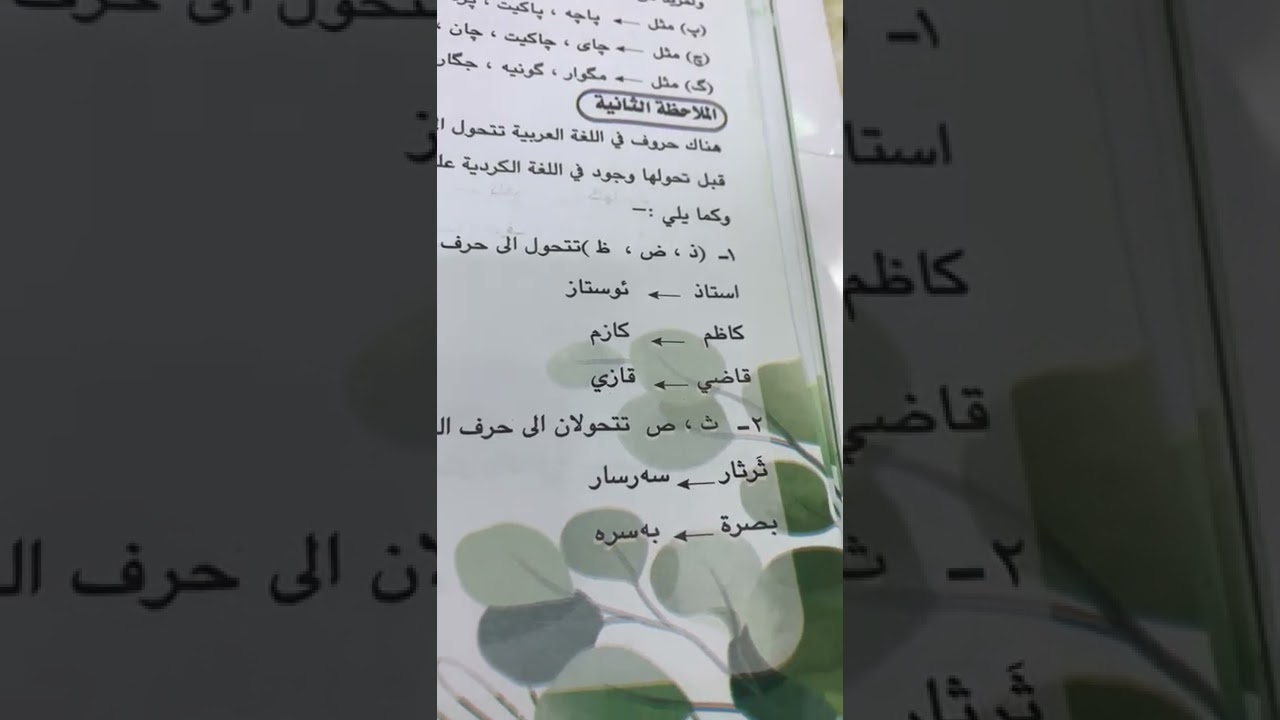 (پ) مثل ← پاچه ، پاكيت ،
(چ) مثل ← چای ، چاكيت ، چان ،
(گ) مثل ← مگوار ، گونيه ، جگار
الملاحظة الثانية
هناك حروف في اللغة العربية تتحول
قبل تحولها وجود في اللغة الكردية
وكما يلي :–
١ـ (ذ ، ض ، ظ )تتحول الى حرف
استاذ ← ئوستاز
كاظم ← كازم
قاضي ← قازي
٢ـ ث ، ص تتحولان الى حرف
ثَرثار ← سەرسار
بصرة ← بەسرە